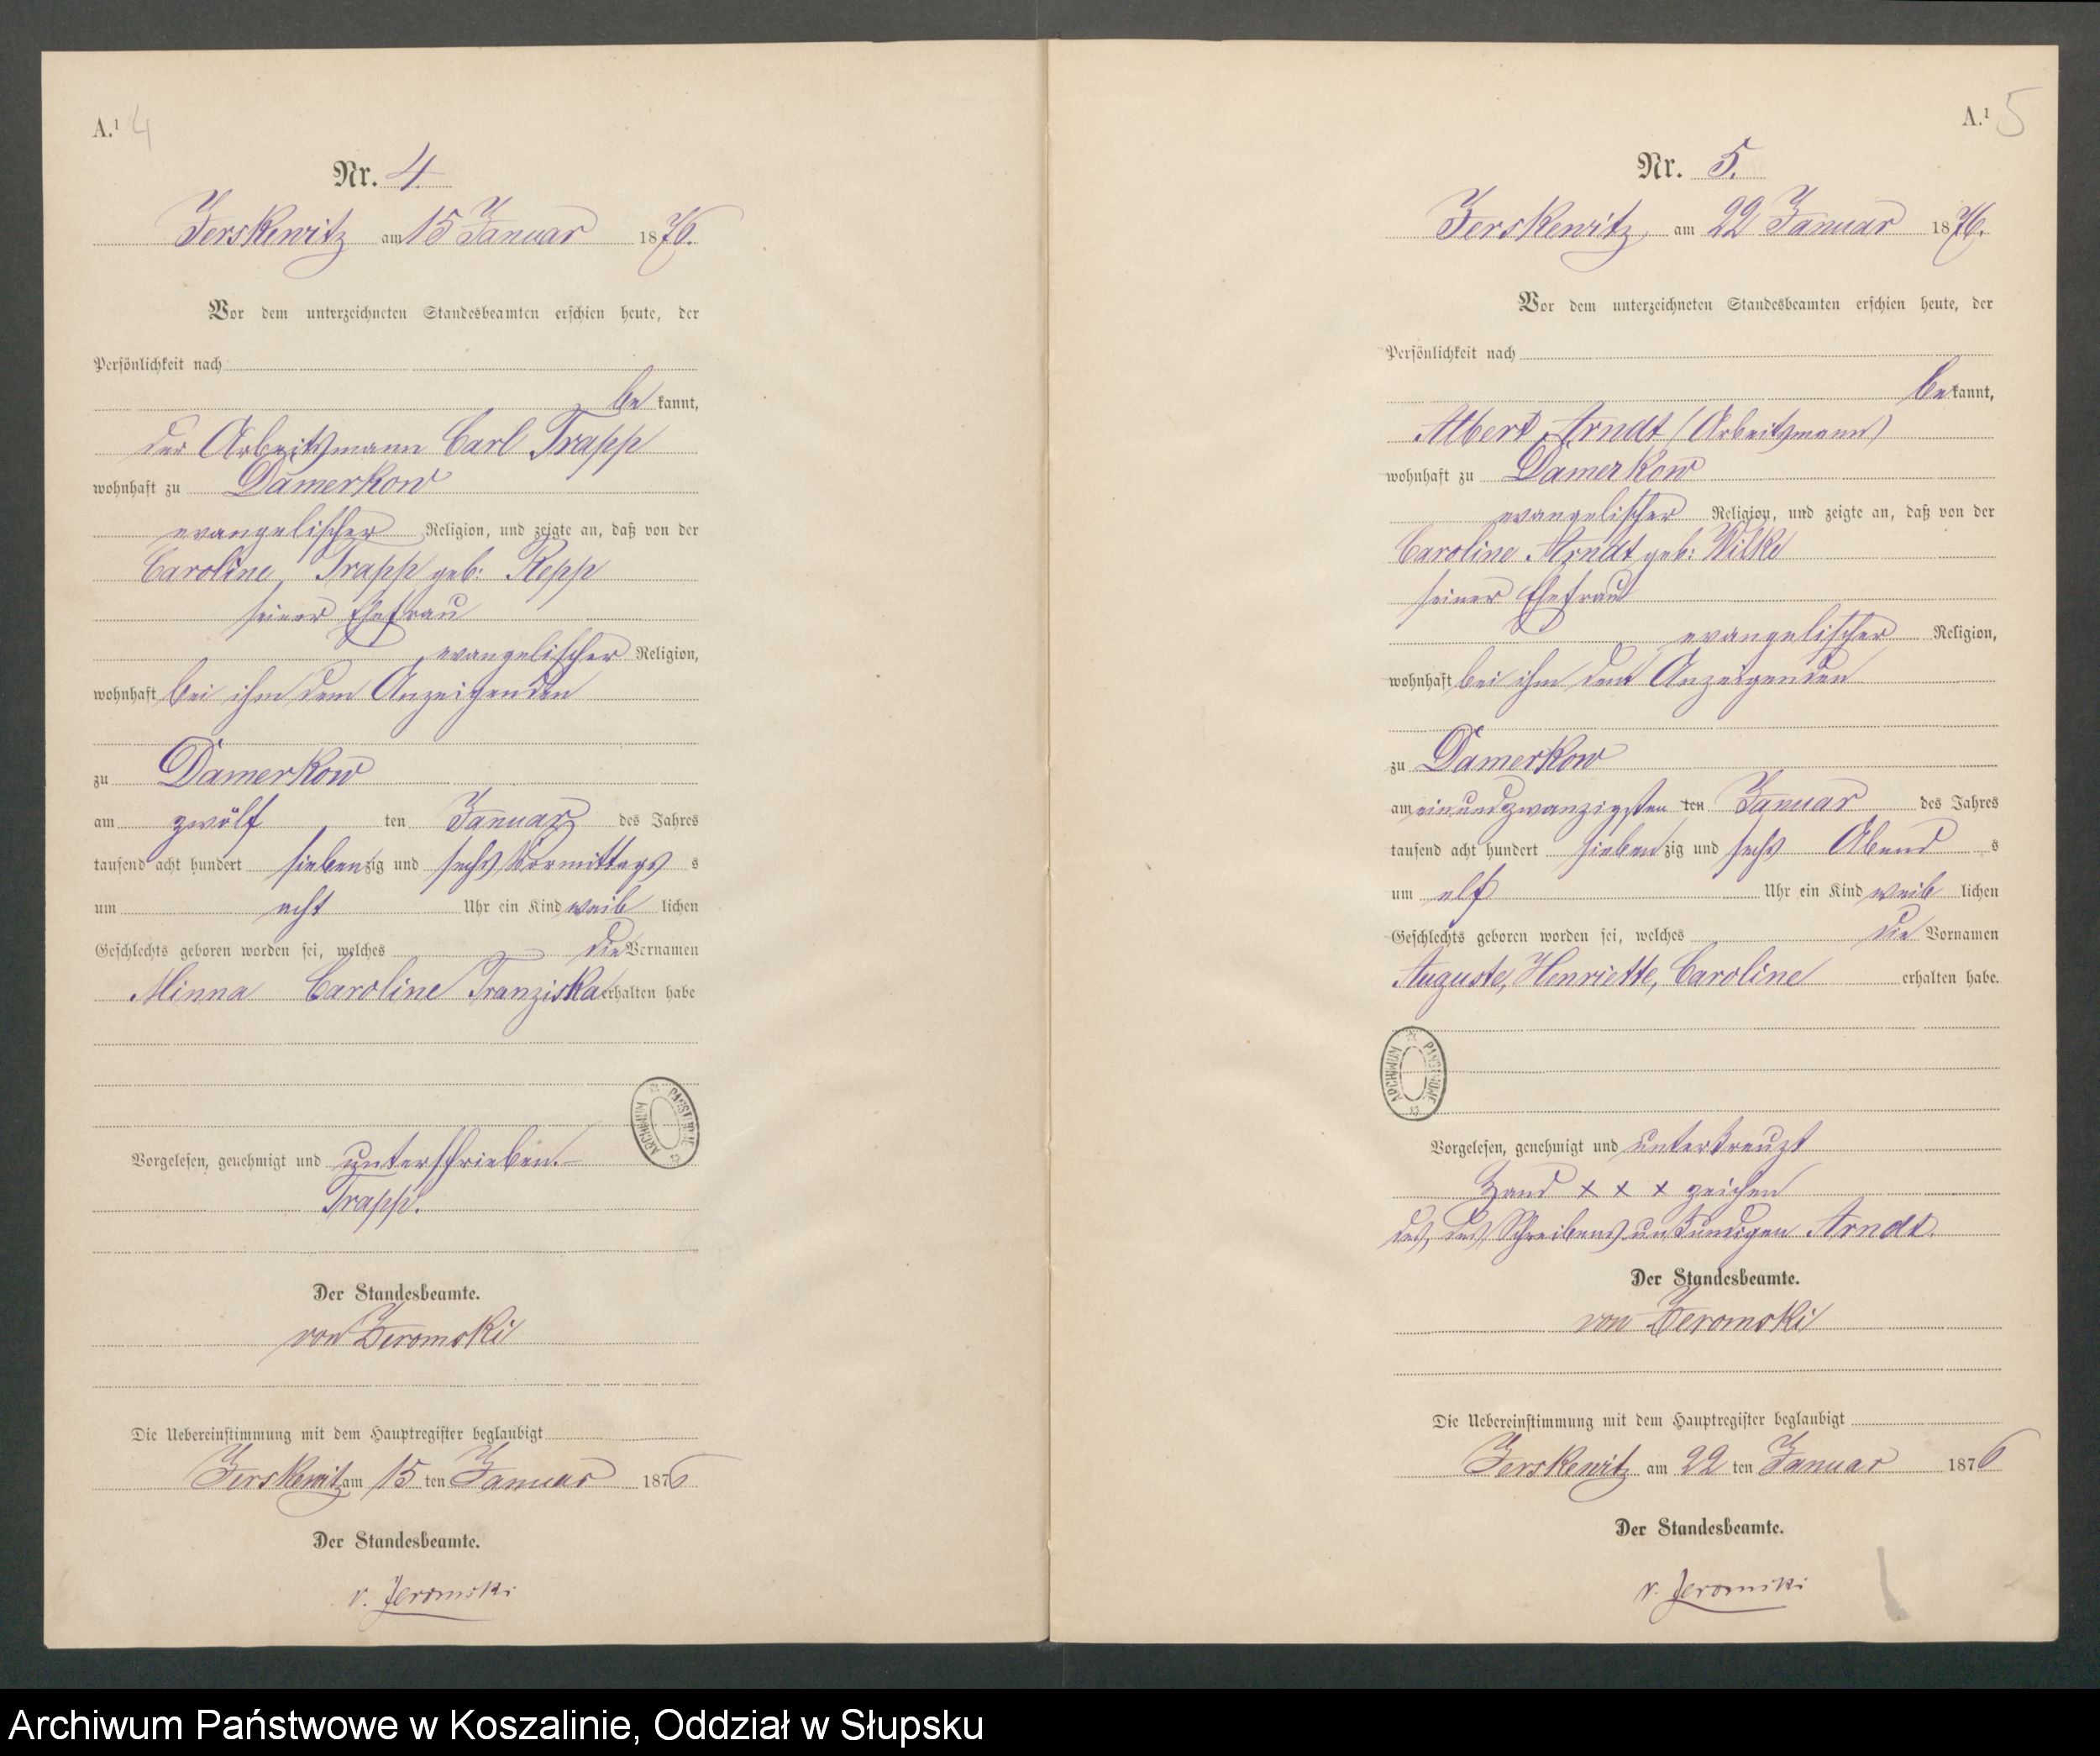 A.¹ 4
Nr. 4.
Jerskewitz am 15 Januar 1876.
Vor dem unterzeichneten Standesbeamten erschien heute, der
Persönlichkeit nach
be kannt,
der Arbeitsmann Carl Trapp
wohnhaft zu Damerkow
evangelischer Religion, und zeigte an, daß von der
Caroline, Trapp geb: Repp
seiner Ehefrau
evangelischer Religion,
wohnhaft bei ihm dem Anzeigenden
zu Damerkow
am zwölf ten Januar des Jahres
tausend acht hundert siebenzig und sechs Vormittags s
um acht Uhr ein Kind weib lichen
Geschlechts geboren worden sei, welches die Vornamen
Minna Caroline Franziska erhalten habe
ARCHIWUM PAŃSTWOWE
Vorgelesen, genehmigt und unterschrieben.
Trapp.
Der Standesbeamte.
von Jeromski
Die Uebereinstimmung mit dem Hauptregister beglaubigt
Jerskewitz am 15 ten Januar 1876
Der Standesbeamte.
v. Jeromski
A.¹ 5
Nr. 5.
Jerskewitz, am 22 Januar 1876.
Vor dem unterzeichneten Standesbeamten erschien heute, der
Persönlichkeit nach
be kannt,
Albert Arndt (Arbeitsmann)
wohnhaft zu Damerkow
evangelischer Religion, und zeigte an, daß von der
Caroline Arndt geb: Wilke
seiner Ehefrau
evangelischer Religion,
wohnhaft bei ihm dem Anzeigenden
zu Damerkow
am einundzwanzigsten ten Januar des Jahres
tausend acht hundert sieben zig und sechs Abend s
um elf Uhr ein Kind weib lichen
Geschlechts geboren worden sei, welches die Vornamen
Auguste, Henriette, Caroline erhalten habe.
ARCHIWUM PAŃSTWOWE
Vorgelesen, genehmigt und unterkreuzt
Hand x x x zeichen
des, des Schreibens unkundigen Arndt.
Der Standesbeamte.
von Jeromski
Die Uebereinstimmung mit dem Hauptregister beglaubigt
Jerskewitz am 22 ten Januar 1876
Der Standesbeamte.
v. Jeromski
Archiwum Państwowe w Koszalinie, Oddział w Słupsku